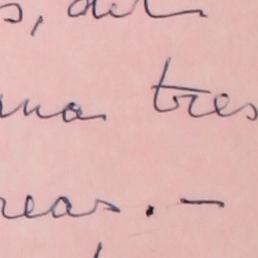 s, del
una tres
reas. —